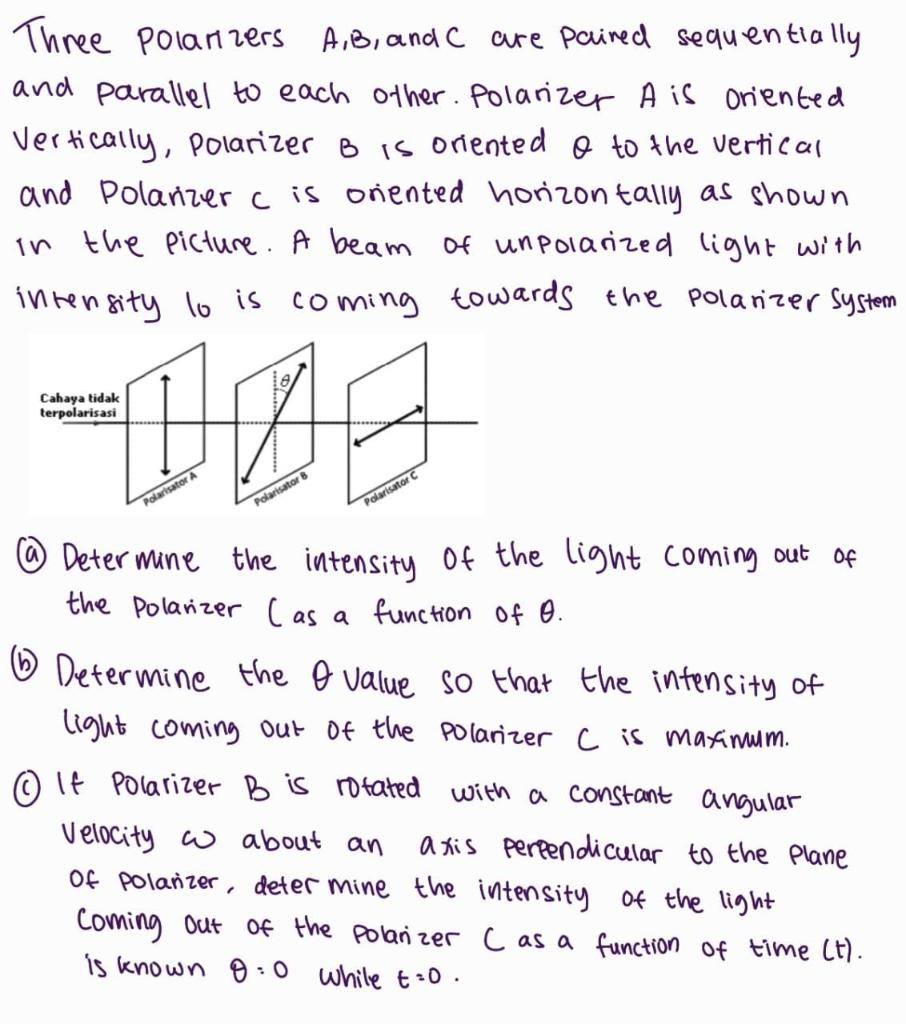 Three Polarizers A,B, and C are Paired sequentially
and parallel to each other. Polarizer A is oriented
Vertically, Polarizer B is oriented θ to the vertical
and Polarizer C is oriented horizontally as shown
in the picture. A beam of unpolarized light with
intensity I0 is coming towards the polarizer system
Cahaya tidak
terpolarisasi
θ
Polarisator A
Polarisator B
Polarisator C
(a) Determine the intensity of the light coming out of
the Polarizer C as a function of θ.
(b) Determine the θ value so that the intensity of
light coming out of the polarizer C is maximum.
(c) If Polarizer B is rotated with a constant angular
velocity ω about an axis perpendicular to the plane
of polarizer, determine the intensity of the light
Coming out of the polarizer C as a function of time (t).
is known θ=0 while t=0.